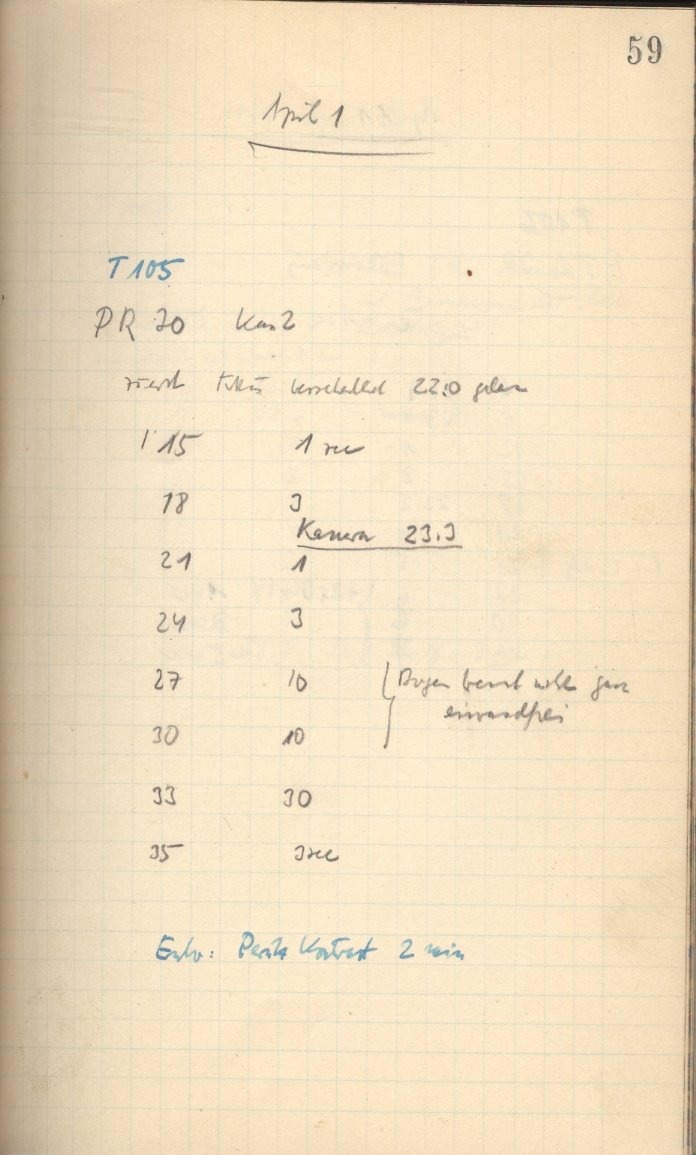 59
April 1
T 105
PR 70 Kan 2
zuerst Fokus 22.0
15 1 sec
18 3
Kamera 23.3
21 1
24 3
27 10 Bogen brennt nicht ganz
einwandfrei
30 10
33 30
35 3 sec
Entw: Kontrast 2 min